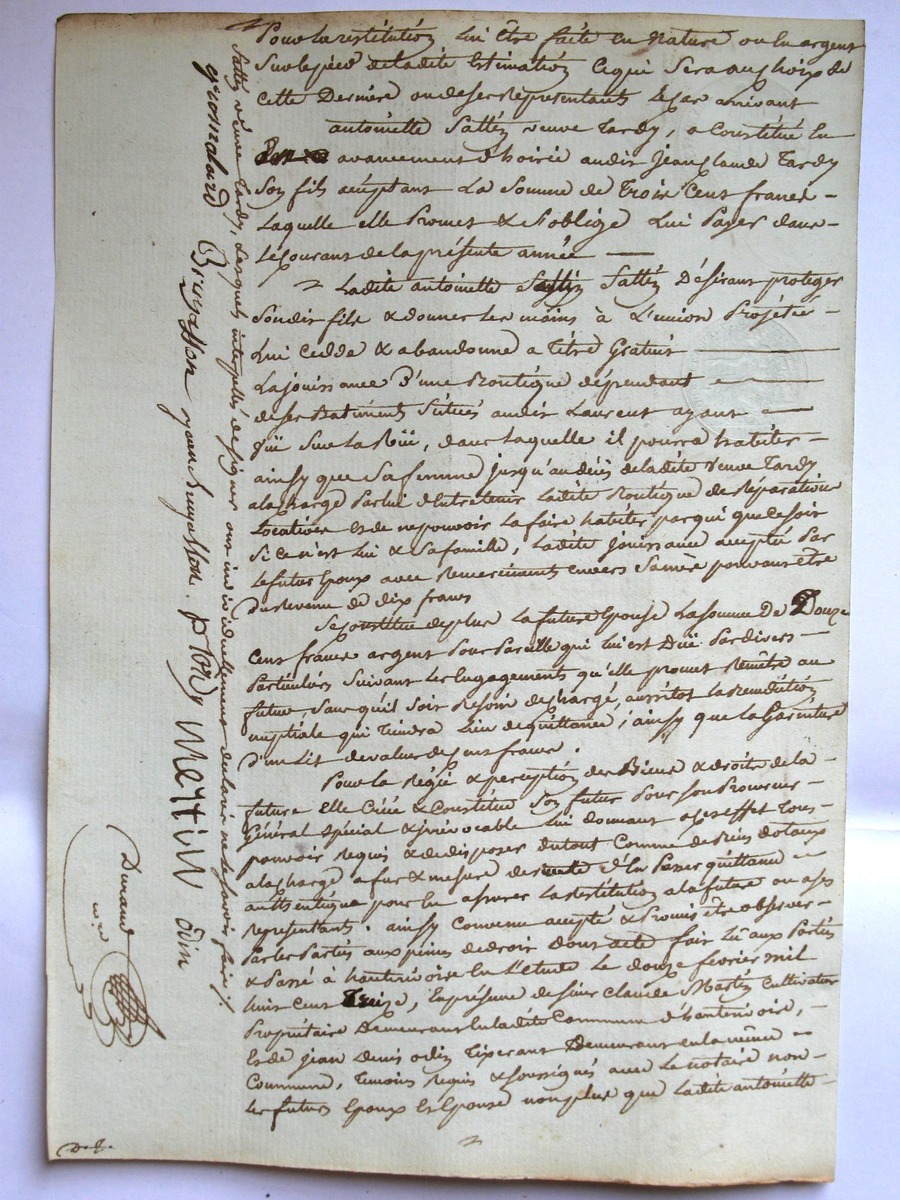 Pour la restitution lui être faite en nature ou en argent
sur le pied de ladite estimation ce qui sera au choix de
cette derniere ou de ses representants, Et par arrivant
antoinette Sattin veuve Tardy, a Constitué en
avancement d'hoirie audit Jean Claude Tardy
son fils acceptant La Somme de Trois Cent francs -
Laquelle elle Promet & s'oblige Lui Payer dans -
le Courant de la présente année —
Ladite antoinette Sattin Désirant proteger
sondit fils & donner les mains à L'union Projétée -
Lui cedde & abandonne a titre Gratuit —
La jouissance D'une Boutique dépendant —
de ses Batiments Situés audit Laurent ayant —
vüe sur La Rüe, dans laquelle il pourra habiter -
ainsy que sa femme jusqu'au déces de ladite veuve Tardy
a la charge Par lui d'Entretenir Ladite Boutique de Réparations
locatives et de ne pouvoir La faire habiter par qui que ce soit
Si ce n'est Lui & Sa famille, Ladite jouissance acceptée Par
Le futur Epoux avec Remerciments envers Sa mère pouvant être
Du Revenu de dix francs
Se constitue de plus La future Epouse La somme De Douze
Cent francs argent Pour Pareille qui lui est Düe Par divers -
Particuliers Suivant Les Engagements qu'elle promet Remêtre au
futur Sans qu'il soit Besoin de charge, aussitot La Benediction
nuptiale qui Tiendra Lieu de quittance, ainsy que La Garniture
D'un Lit de valeur de cent francs.
Pour la Régie & perception des Biens & droits de la -
future elle Créé & Constitue Son futur Pour Son Procureur -
Général Spécial & irrévocable Lui donnant a ces effet Tous -
pouvoir Requis & de disposer du tout Comme de Biens dotaux
a la charge a fur & mesure de vente d'En Passer quittance -
authentique pour En assurer La Restitution a la future ou a ses
representants. ainsy Convenu accepté & Promis être observer -
Par Les Parties aux peines de droit dont acte fait Lû aux Parties
& Passé à hauterivoire En L'etude Le douze fevrier mil
huit Cent Treize, En présence de Sieur Claude Martin Cultivateur
Propriétaire Demeurant En ladite Commune d'hauterivoire, -
Et de Jean Denis odin Tisserant Demeurant en la même -
Commune, Temoins Requis & soussignés avec Le notaire non -
Les futurs Epoux Et Epouse non plus que Ladite antoinette -
Sattin veuve Tardy, Lesquels interpellés de signer ont individuellement declaré ne le savoir faire /.
Bruyasson Jean bruyasson. Martin odin
Durand
nre